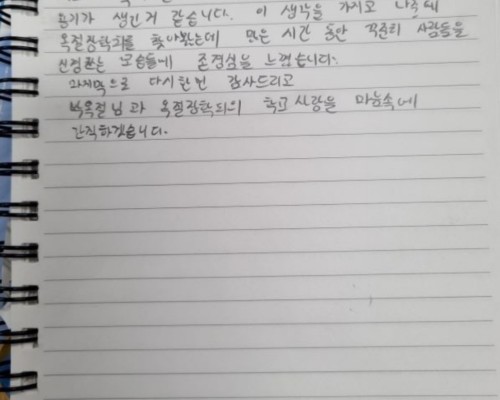 용기가 생긴거 같습니다. 이 생각을 가지고 나중에
옥절장학회를 찾아봤는데 많은 시간 동안 꾸준히 사람들을
신경쓰는 모습들에 존경심을 느꼈습니다.
마지막으로 다시한번 감사드리고
박옥절님과 옥절장학회의 학교사랑을 마음속에
간직하겠습니다.